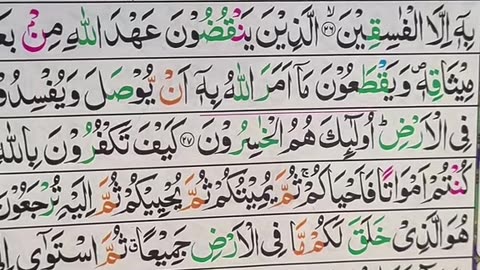 بِهٖۤ اِلَّا الْفٰسِقِیْنَ ۙ﴿۲۶﴾ الَّذِیْنَ یَنْقُضُوْنَ عَهْدَ اللّٰهِ مِنْۢ
مِیْثَاقِهٖ ۪ وَیَقْطَعُوْنَ مَاۤ اَمَرَ اللّٰهُ بِهٖۤ اَنْ یُّوْصَلَ وَیُفْسِدُوْ
فِی الْاَرْضِ ؕ اُولٰٓئِكَ هُمُ الْخٰسِرُوْنَ ﴿۲۷﴾ كَیْفَ تَكْفُرُوْنَ بِاللّٰهِ
كُنْتُمْ اَمْوَاتًا فَاَحْیَاكُمْ ۚ ثُمَّ یُمِیْتُكُمْ ثُمَّ یُحْیِیْكُمْ ثُمَّ اِلَیْهِ تُرْجَعُوْنَ
هُوَ الَّذِیْ خَلَقَ لَكُمْ مَّا فِی الْاَرْضِ جَمِیْعًا ۗ ثُمَّ اسْتَوٰۤی